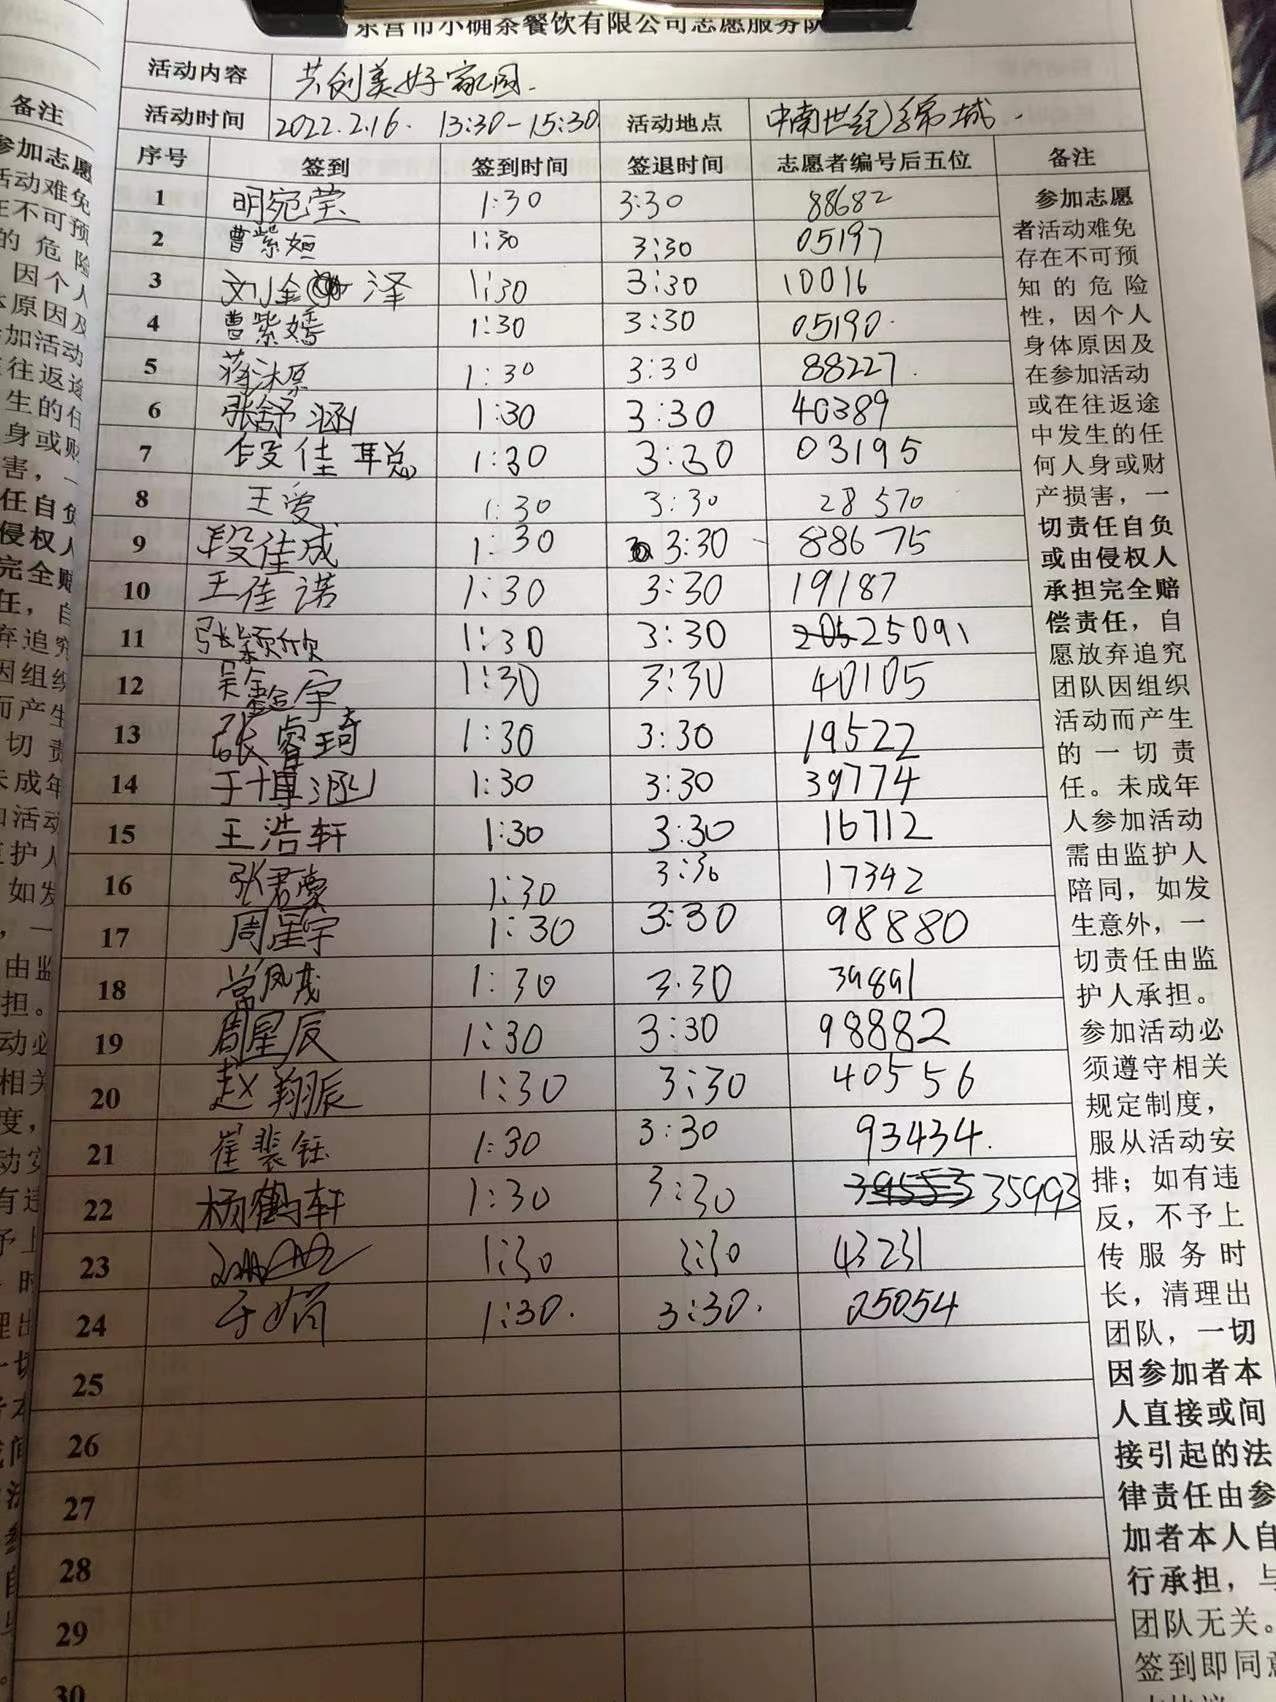 东营市小确茶餐饮有限公司志愿服务队
活动内容 共创美好家园.
活动时间 2022.2.16. 13:30-15:30 活动地点 中南世纪锦城.
序号 签到 签到时间 签退时间 志愿者编号后五位 备注
1 明宛莹 1:30 3:30 88682
2 曹紫姮 1:30 3:30 05197
3 刘金泽 1:30 3:30 10016
4 曹紫嫣 1:30 3:30 05190.
5 蒋沐原 1:30 3:30 88227.
6 张舒涵 1:30 3:30 40389
7 段佳聪 1:30 3:30 03195
8 王爱 1:30 3:30 28570
9 段佳成 1:30 3:30 88675
10 王佳诺 1:30 3:30 19187
11 张颖欣 1:30 3:30 25091
12 吴鑫宇 1:30 3:30 40105
13 张睿琦 1:30 3:30 19522
14 于博涵 1:30 3:30 39774
15 王浩轩 1:30 3:30 16712
16 张君豪 1:30 3:30 17342
17 周星宇 1:30 3:30 98880
18 常凤茂 1:30 3.30 39891
19 周星辰 1:30 3:30 98882
20 赵翔辰 1:30 3:30 40556
21 崔裴钰 1:30 3:30 93434.
22 杨鹤轩 1:30 3:30 35993
23 1:30 3:30 43231
24 于娟 1:30. 3:30. 05054
25
26
27
28
29
30
参加志愿
者活动难免
存在不可预
知的危险
性，因个人
身体原因及
在参加活动
或在往返途
中发生的任
何人身或财
产损害，一
切责任自负
或由侵权人
承担完全赔
偿责任，自
愿放弃追究
团队因组织
活动而产生
的一切责
任。未成年
人参加活动
需由监护人
陪同，如发
生意外，一
切责任由监
护人承担。
参加活动必
须遵守相关
规定制度，
服从活动安
排；如有违
反，不予上
传服务时
长，清理出
团队，一切
因参加者本
人直接或间
接引起的法
律责任由参
加者本人自
行承担，与
团队无关。
签到即同意